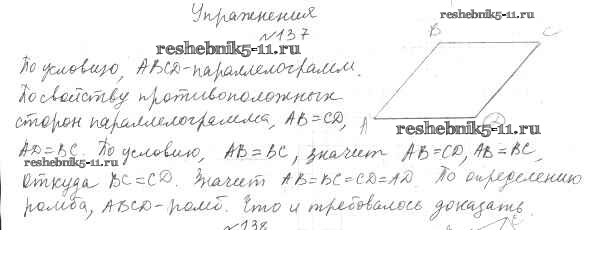 Упражнения
№137
reshebnik5-11.ru
reshebnik5-11.ru
По условию, ABCD-параллелограмм.
B C
По свойству противоположных
сторон параллелограмма, AB=CD,
A
reshebnik5-11.ru
AD=BC. По условию, AB=BC, значит AB=CD, AB=BC,
reshebnik5-11.ru
откуда BC=CD. Значит AB=BC=CD=AD. По определению
ромба, ABCD-ромб. Что и требовалось доказать.
№138